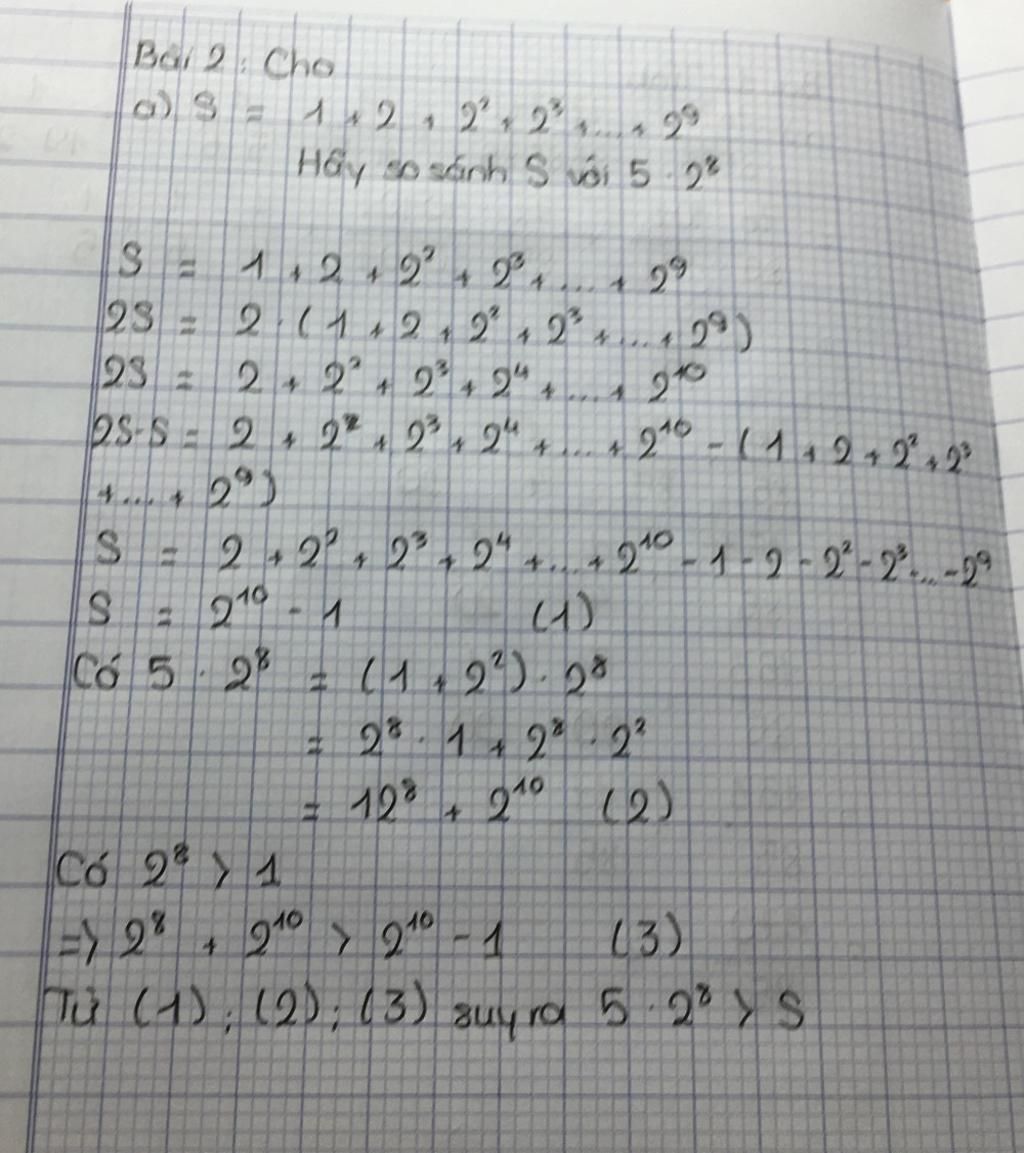 Bài 2: Cho
a) S = 1 + 2 + 2² + 2³ + ... + 2⁹
Hãy so sánh S với 5 . 2⁸
S = 1 + 2 + 2² + 2³ + ... + 2⁹
2S = 2 . (1 + 2 + 2² + 2³ + ... + 2⁹)
2S = 2 + 2² + 2³ + 2⁴ + ... + 2¹⁰
2S-S = 2 + 2² + 2³ + 2⁴ + ... + 2¹⁰ - (1 + 2 + 2² + 2³
+ ... + 2⁹)
S = 2 + 2² + 2³ + 2⁴ + ... + 2¹⁰ - 1 - 2 - 2² - 2³ - ... - 2⁹
S = 2¹⁰ - 1 (1)
Có 5 . 2⁸ = (1 + 2²) . 2⁸
= 2⁸ . 1 + 2⁸ . 2²
= 12⁸ + 2¹⁰ (2)
Có 2⁸ > 1
=> 2⁸ + 2¹⁰ > 2¹⁰ - 1 (3)
Từ (1); (2); (3) suy ra 5 . 2⁸ > S